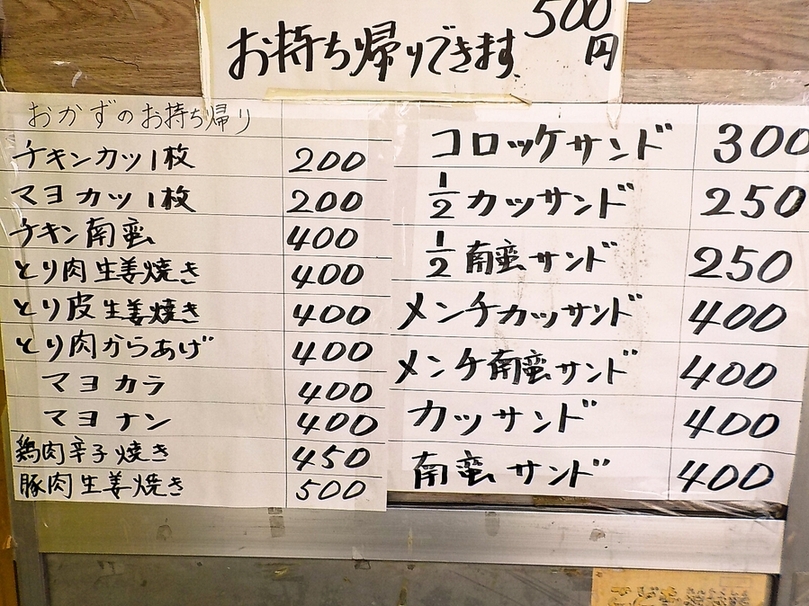 500
円
お持ち帰りできます。
おかずのお持ち帰り
チキンカツ1枚 200
マヨカツ1枚 200
チキン南蛮 400
とり肉生姜焼き 400
とり皮生姜焼き 400
とり肉からあげ 400
マヨカラ 400
マヨナン 400
鶏肉辛子焼き 450
豚肉生姜焼き 500
コロッケサンド 300
1/2カツサンド 250
1/2南蛮サンド 250
メンチカツサンド 400
メンチ南蛮サンド 400
カツサンド 400
南蛮サンド 400